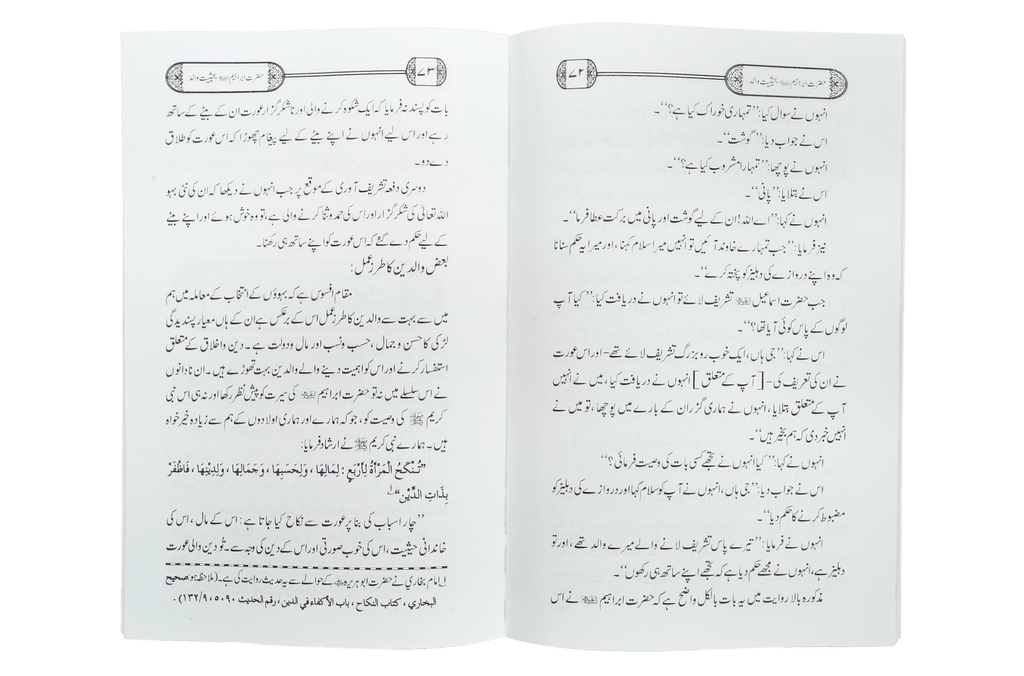 حضرت ابراہیم علیہ السلام بحیثیت والد
۷۲
انہوں نے سوال کیا: ’’تمہاری خوراک کیا ہے؟‘‘۔
اس نے جواب دیا: ’’گوشت‘‘۔
انہوں نے پوچھا: ’’تمہارا مشروب کیا ہے؟‘‘۔
اس نے بتلایا: ’’پانی‘‘۔
انہوں نے کہا: ’’اے اللہ! ان کے لیے گوشت اور پانی میں برکت عطا فرما‘‘۔
نیز فرمایا: ’’جب تمہارے خاوند آئیں تو انہیں میرا سلام کہنا، اور میرا یہ حکم سنانا
کہ وہ اپنے دروازے کی دہلیز کو پختہ کرے‘‘۔
جب حضرت اسماعیل علیہ السلام تشریف لائے تو انہوں نے دریافت کیا: ’’کیا آپ
لوگوں کے پاس کوئی آیا تھا؟‘‘۔
اس نے کہا: ’’جی ہاں، ایک خوب رو بزرگ تشریف لائے تھے۔ اور اس عورت
نے ان کی تعریف کی۔ [آپ کے متعلق] انہوں نے دریافت کیا، میں نے انہیں
آپ کے متعلق بتلایا، انہوں نے ہماری گزران کے بارے میں پوچھا، تو میں نے
انہیں خبر دی کہ ہم بخیر ہیں‘‘۔
انہوں نے کہا: ’’کیا انہوں نے تجھے کسی بات کی وصیت فرمائی؟‘‘
اس نے جواب دیا: ’’جی ہاں، انہوں نے آپ کو سلام کہا اور دروازے کی دہلیز کو
مضبوط کرنے کا حکم دیا‘‘۔
انہوں نے فرمایا: ’’تیرے پاس تشریف لانے والے میرے والد تھے، اور تو
دہلیز ہے، انہوں نے مجھے حکم دیا ہے کہ تجھے اپنے ساتھ ہی رکھوں‘‘۔
مذکورہ بالا روایت میں یہ بات بالکل واضح ہے کہ حضرت ابراہیم علیہ السلام نے اس
۷۳
حضرت ابراہیم علیہ السلام بحیثیت والد
بات کو پسند نہ فرمایا کہ ایک شکوہ کرنے والی اور ناشکر گزار عورت ان کے بیٹے کے ساتھ
رہے اور اس لیے انہوں نے اپنے بیٹے کے لیے پیغام چھوڑا کہ اس عورت کو طلاق
دے دو۔
دوسری دفعہ تشریف آوری کے موقع پر جب انہوں نے دیکھا کہ ان کی نئی بہو
اللہ تعالیٰ کی شکر گزار اور اس کی حمد و ثنا کرنے والی ہے، تو وہ خوش ہوئے اور اپنے بیٹے
کے لیے حکم دے گئے کہ اس عورت کو اپنے ساتھ ہی رکھنا۔
بعض والدین کا طرزِ عمل:
مقام افسوس ہے کہ بہوؤں کے انتخاب کے معاملہ میں ہم
میں سے بہت سے والدین کا طرزِ عمل اس کے برعکس ہے ان کے ہاں معیار پسندیدگی
لڑکی کا حسن و جمال، حسب و نسب اور مال و دولت ہے۔ دین و اخلاق کے متعلق
استفسار کرنے اور اس کو اہمیت دینے والے والدین بہت تھوڑے ہیں۔ ان نادانوں
نے اس سلسلے میں نہ تو حضرت ابراہیم علیہ السلام کی سیرت کو پیش نظر رکھا اور نہ ہی اس نبی
کریم ﷺ کی وصیت کو، جو کہ ہمارے اور ہماری اولادوں کے ہم سے زیادہ خیر خواہ
ہیں۔ ہمارے نبی کریم ﷺ نے ارشاد فرمایا:
”تُنْكَحُ الْمَرْأَةُ لِأَرْبَعٍ: لِمَالِهَا، وَلِحَسَبِهَا، وَجَمَالِهَا، وَلِدِيْنِهَا، فَاظْفَرْ
بِذَاتِ الدِّيْنِ“۱
’’چار اسباب کی بنا پر عورت سے نکاح کیا جاتا ہے: اس کے مال، اس کی
خاندانی حیثیت، اس کی خوب صورتی اور اس کے دین کی وجہ سے۔ تُو دین والی عورت
۱ امام بخاری نے حضرت ابو ہریرہ رضی اللہ عنہ کے حوالے سے یہ حدیث روایت کی ہے۔ (ملاحظہ ہو: صحيح
البخاري، كتاب النكاح، باب الأكفاء في الدين، رقم الحديث ۵۰۹۰، ۱۳۲/۹).